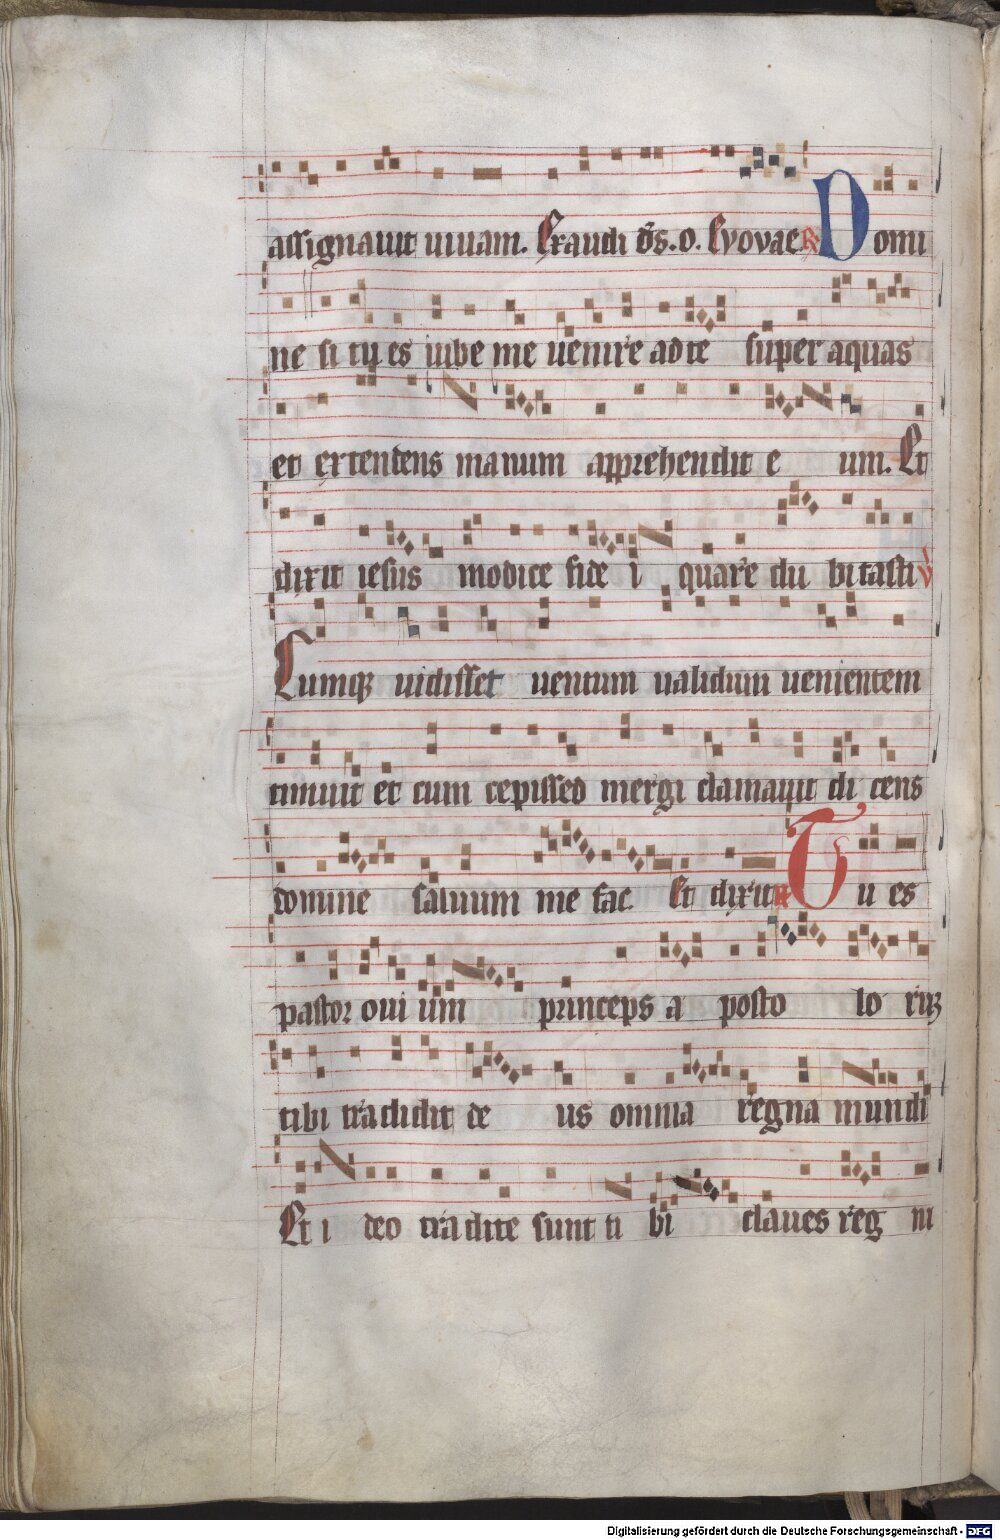 assignauit uiuam. Exaudi ds. o. Evovae. R Domi
ne si tu es iube me uenire ad te super aquas
et extendens manum apprehendit e um. Et
dixit iesus modice fide i quare du bitasti V
Cumq uidisset uentum ualidum uenientem
timuit et cum cepisset mergi clamauit di cens
domine saluum me fac. Et dixit R Tu es
pastor oui um princeps a posto lo rum
tibi tradidit de us omnia regna mundi
Et i deo tradite sunt ti bi claues reg ni
Digitalisierung gefördert durch die Deutsche Forschungsgemeinschaft - DFG